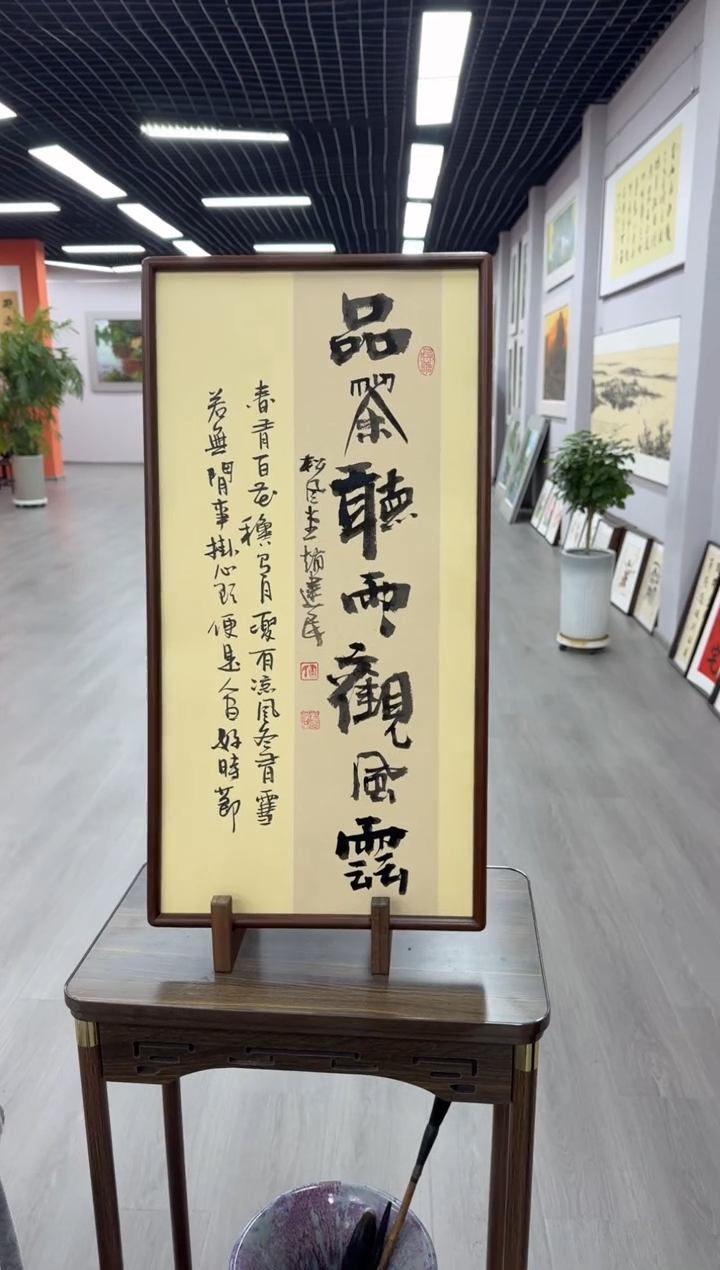 品茶聽雨觀風雲
松风堂趙建民
春有百花穐有月夏有凉風冬有雪
若無閒事掛心頭便是人間好時節